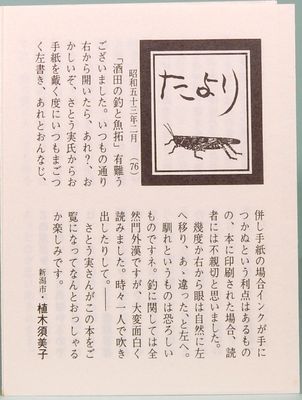 たより
昭和五十三年二月 (76)
「酒田の釣と魚拓」有難う
ございました。いつもの通り
右から開いたら、あれ?、お
かしいぞ、さとう実氏からお
手紙を戴く度にいつもまごつ
く左書き、あれとおんなじ、
併し手紙の場合インクが手に
つかぬという利点はあるもの
の、本に印刷された場合、読
者には不親切と思いました。
幾度か右から眼は自然に左
へ移り、あゝ違った、と左へ。
馴れというものは恐ろしい
ものですネ。釣に関しては全
然門外漢ですが、大変面白く
読みました。時々一人で吹き
出したりして。——
さとう実さんがこの本をご
覧になってなんとおっしゃる
か楽しみです。
新潟市・植木須美子